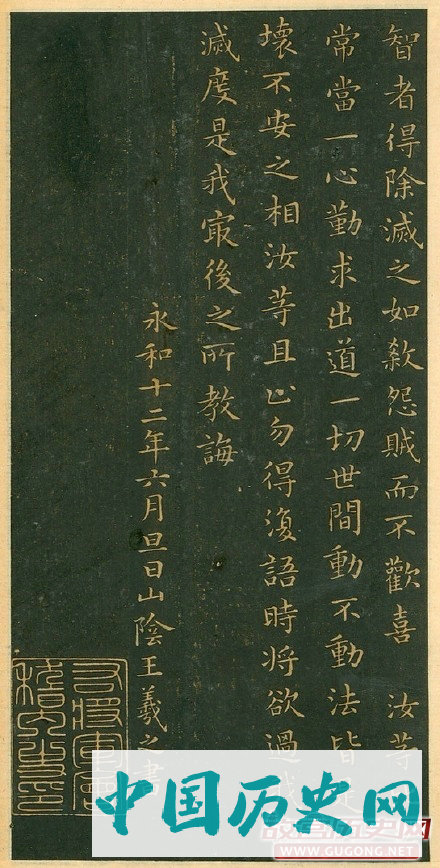 智者得除滅之如殺怨賊而不歡喜 汝等
常當一心勤求出道一切世間動不動法皆是
壞不安之相汝等且止勿得復語時將欲過
滅度是我最後之所教誨
永和十二年六月旦日山陰王羲之書
右將軍會
稽內史印
中国历史网
故宫历史网
WWW.GUGONG.NET